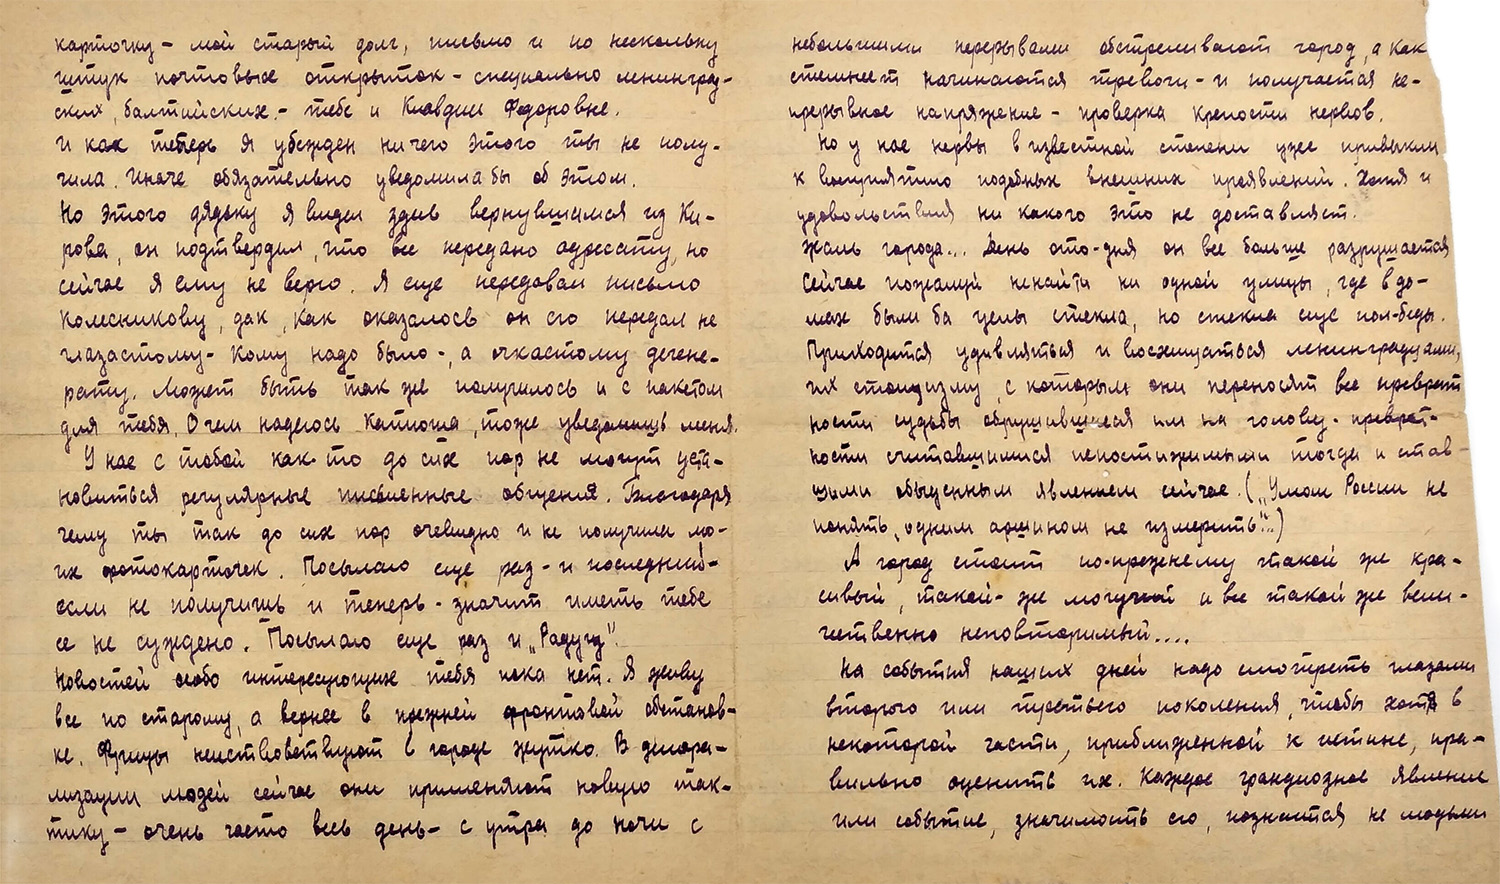 карточку – мой старый долг, письмо и по нескольку
штук почтовых открыток – специально ленинград-
ских, балтийских – тебе и Клавдии Федоровне.
и как теперь я убежден ничего этого ты не полу-
чила. Иначе обязательно уведомила бы об этом.
Но этого дядьку я видел здесь вернувшимся из Ки-
рова, он подтвердил, что все передано адресату, но
сейчас я ему не верю. Я еще передавал письмо
Колесникову, дак, как оказалось он его передал не
глазастому – кому надо было –, а очкастому дегене-
рату. Может быть так же получилось и с пакетом
для тебя. О чем надеюсь Катюша, тоже уведомишь меня.
У нас с тобой как-то до сих пор не могут уста-
новиться регулярные письменные общения. Благодаря
чему ты так до сих пор очевидно и не получила мо-
их фотокарточек. Посылаю еще раз – и последний –
если не получишь и теперь – значит иметь тебе
ее не суждено. Посылаю еще раз и „Радугу".
Новостей особо интересующих тебя пока нет. Я живу
все по старому, а вернее в прежней фронтовой обстанов-
ке. Фрицы неистовствуют в городе жутко. В дезорга-
лизации людей сейчас они применяют новую так-
тику – очень часто весь день – с утра до ночи с
небольшими перерывами обстреливают город, а как
стемнеет начинаются тревоги – и получается не-
прерывное напряжение – проверка крепости нервов.
Но у нас нервы в известной степени уже привыкли
к восприятию подобных внешних проявлений. Хотя и
удовольствия ни какого это не доставляет.
Жаль города... День ото-дня он все больше разрушается
Сейчас пожалуй ненайти ни одной улицы, где в до-
мах были ба целы стекла, но стекла еще пол-беды.
Приходится удивляться и восхищаться ленинградцами,
их стоицизму, с которым они переносят все преврат
ности судьбы обрушившиеся им на голову – преврат-
ности считавшимися непостижимыми тогда и став-
шими обыденным явлением сейчас. („Умом России не
понять, одним аршином не измерить"...)
А город стоит по-прежнему такой же кра-
сивый, такой-же могучий и все такой же вели-
чественно неповторимый....
На события наших дней надо смотреть глазами
второго или третьего поколения, чтобы хотя в
некоторой части, приближенной к истине, пра-
вильно оценить их. Каждое грандиозное явление
или событие, значимость его, познается не людьми